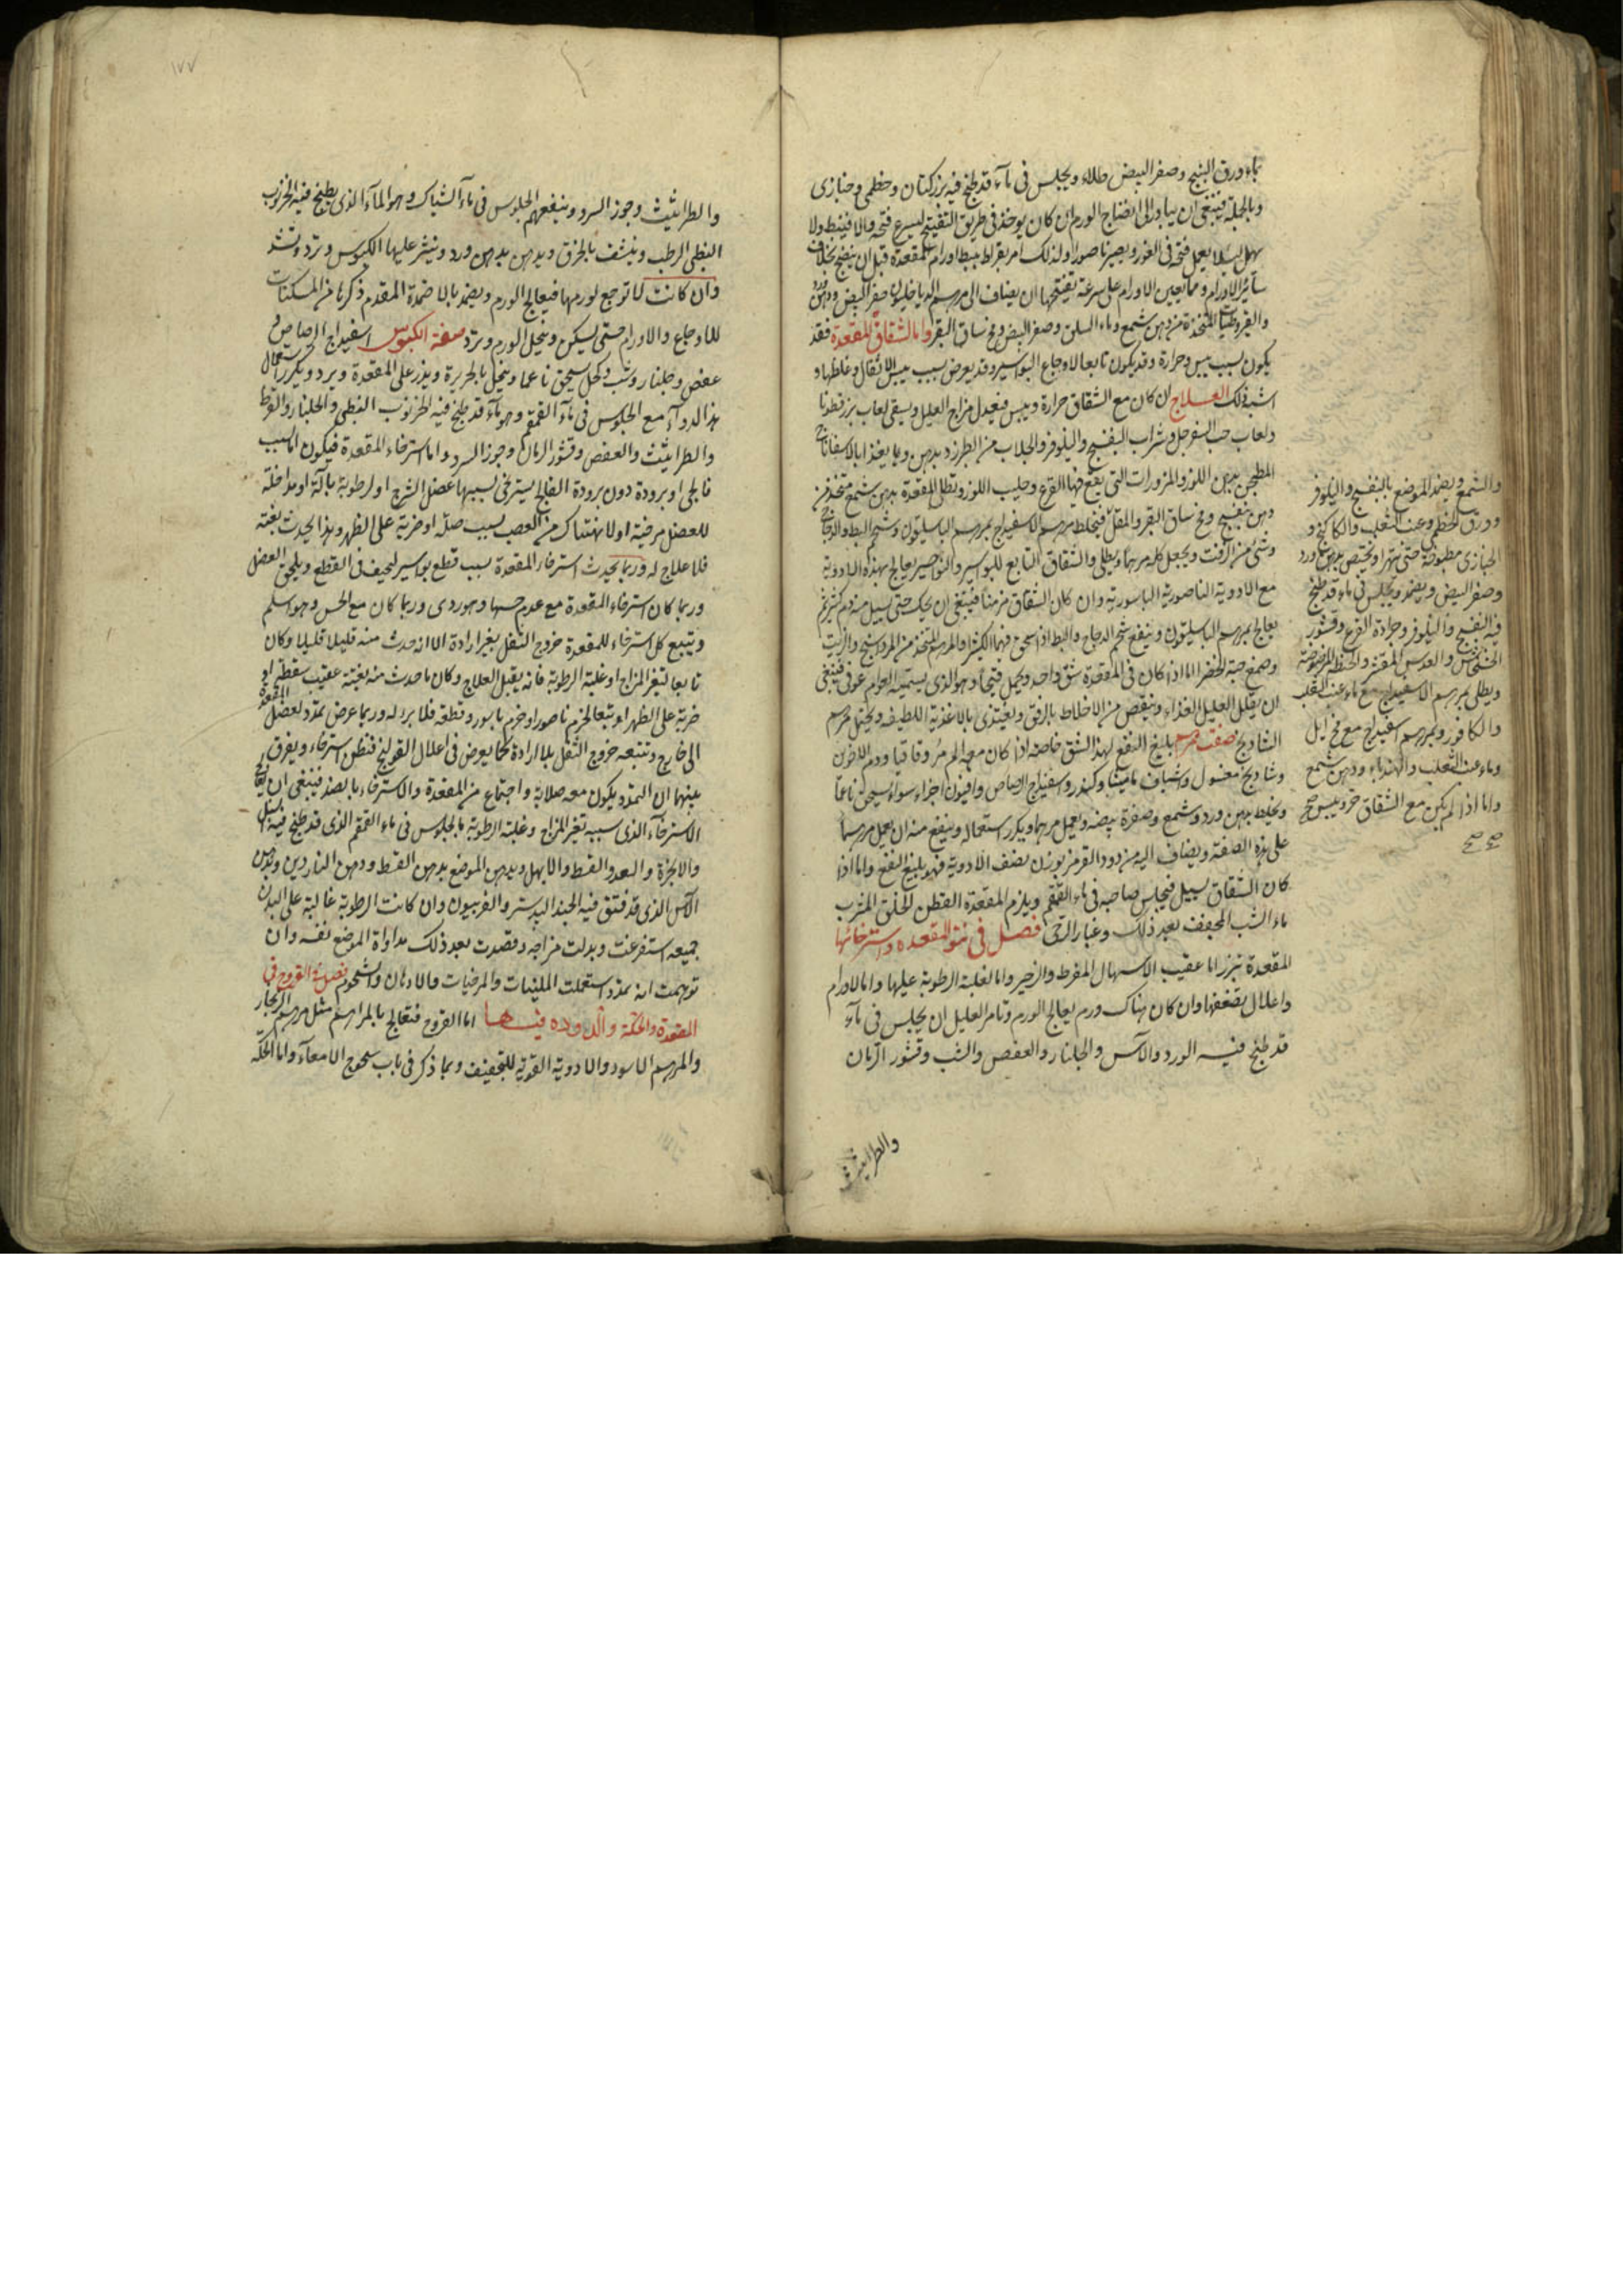 بماء ورق البنج وصفر البيض طلاء ويجلس في ماء قد طبخ فيه بزر كتان وخطمي وخبازى
وبالجملة فينبغي ان يبادر الى انضاج الورم ان كان يوخذ في طريق التفتيح ليسرع فتحه والا فيبط ولا
يهمل لئلا يعمل فتحه في الغور ويصير ناصورا ولذلك امر بقراط ببط اورام المقعدة قبل ان ينضج بخلاف
سائر الاورام ومما يعين الاورام على سرعة تفتحها ان يضاف الى مرهم الدياخيلون صفر البيض ودهن ورد
والقيروطيات المتخذة من دهن شمع وماء السلق وصفر البيض ومخ ساق البقر واما الشقاق للمقعدة فقد
يكون بسبب يبس وحرارة وقد يكون تابعا لاوجاع البواسير وقد يعرض بسبب يبس الاثفال وغلظها و
اشبه ذلك العلاج ان كان مع الشقاق حرارة ويبس فيعدل مزاج العليل ويسقى لعاب بزر قطونا
ولعاب حب السفرجل وشراب البنفسج والنيلوفر والجلاب من الطبرزد بدهن وبما يغذا بالاسفاناخ
المطجن بدهن اللوز والمزورات التي يقع فيها القرع وحليب اللوز وتطلى المقعدة بدهن شمع متخذ من
دهن بنفسج ومخ ساق البقر والمقل فيخلط مرهم الاسفيداج بمرهم الباسليقون وشحم البط والدجاج
وشئ من الزفت ويجعل كله مرهما ويطلى والشقاق التابع للبواسير والنواصير يعالج بهذه الادوية
مع الادوية الناصورية الباسورية وان كان الشقاق مزمنا فينبغي ان يحك حتى يسيل منه دم كثير ثم
يعالج بمرهم الباسليقون وينفع شحم الدجاج والبط اذا سحق فيهما الكثيرا والمرهم المتخذ من المرداسنج والزيت
وصمغ حبة الخضرا اما اذا كان في المقعدة شق واحد ويحمل فتيحا وهو الذي يسميه العوام عوفى فينبغي
ان يقلل العليل الغذاء وينقص من الاخلاط بالرفق ويغتذى بالاغذية اللطيفة ويحتمل مرهم
الشادنج صفت مرهم بليغ النفع لهذا الشق خاصة اذا كان معه الم مر وقاقيا ودم الاخوين
وشادنج مغسول وشياف ماميثا وكندر واسفيداج الرصاص وافيون اجزاء سواء يسحق ناعما
ويخلط بدهن ورد وشمع وصفرة بيضه ويعمل مرهما ويكرر استعماله وينفع منه ان يعمل مرهما
على هذه الصفة ويضاف اليه من دود القرمز بوزن نصف الادوية فهو بليغ النفع واما اذا
كان الشقاق يسيل فيجلس صاحبه في ماء القمقم ويلزم المقعدة القطن الخلق المشرب
ماء الشب المجفف بعد ذلك وغبار الرحى فصل في نتو المقعده واسترخائها
المقعدة تبرز اما عقيب الاسهال المفرط والزحير واما لغلبة الرطوبة عليها واما لاورام
واعلال يضعفها وان كان هناك ورم يعالج الورم وتامر العليل ان يجلس في ماء
قد طبخ فيه الورد والآس والجلنار والعفص والشب وقشور الرمان
والطراثيث
والشمع ويضمد الموضع بالبنفسج والنيلوفر
وورق الخطمي وعنب الثعلب والكاكنج و
الخبازى مطبوخة حتى تتهرا ويخبص بدهن ورد
وصفر البيض ويضمد ويجلس في ماء قد طبخ
فيه البنفسج والنيلوفر وجرادة القرع وقشور
الخشخاش والعدس المقشر والحنطة المرضوضة
ويطلى بمرهم الاسفيداج مع ماء عنب الثعلب
والكافور وبمرهم اسفيداج مع مخ ايل
وماء عنب الثعلب والهندباء ودهن شمع
واما اذا لم يكن مع الشقاق حر ويبس صح
صح صح
١٧٧
والطراثيث وجوز السرو وينفعهم الجلوس في ماء الشباك وهو الماء الذي يطبخ فيه الخرنوب
النبطي الرطب وينشف بالخرق ويدهن بدهن ورد وينثر عليها الكبوس وترد وتشد
وان كانت لا توجع لورمها فيعالج الورم ويضمد بالاضمدة المقدم ذكرها من المسكنات
للاوجاع والاورام حتى يسكن ويتحيل الورم وترد صفة الكبوس اسفيداج الرصاص و
عفص وجلنار وشب وكحل يسحق ناعما وينخل بالحريرة ويذر على المقعدة ويرد ويكرر استعمال
هذا الدواء مع الجلوس في ماء القمقم وهو ماء قد طبخ فيه الخرنوب النبطي والجلنار والقرظ
والطراثيث والعفص وقشور الرمان وجوز السرو واما استرخاء المقعدة فيكون اما بسبب
فالجي او برودة دون برودة الفالج يسترخى بسببها عضل الشرج او لرطوبة بآلة او مداخلة
للعضل مرخية او لانهتاك من العصب بسبب صدمة او ضربة على الظهر وهذا يحدث بغتة
فلا علاج له وربما يحدث استرخاء المقعدة بسبب قطع بواسير لحيف في القطع ويلحق العضل
وربما كان استرخاء المقعدة مع عدم حسها وهو ردى وربما كان مع الحس وهو اسلم
ويتبع كل استرخاء للمقعدة خروج الثفل بغير ارادة الا انه حدث منه قليلا قليلا وكان
تابعا لتغير المزاج او غلبة الرطوبة فانه يقبل العلاج وكان ما حدث منه بغتة عقيب سقطة او
ضربة على الظهر او تبعا لخرم ناصور او خرم باسور وقطعه فلا برء له وربما عرض تمدد لعضل المقعدة
الى خارج وتتبعه خروج الثفل بلا ارادة كما يعرض في اعلال القولنج فتظن استرخاء ويفرق
بينهما ان التمدد يكون معه صلابة واجتماع من المقعدة والاسترخاء بالضد فينبغي ان يعالج
الاسترخاء الذي سببه تغير المزاج وغلبة الرطوبة بالجلوس في ماء القمقم الذي قد طبخ فيه السنبل
والابخرة والسعد والقسط والابهل ويدهن الموضع بدهن القسط ودهن الناردين ودهن
الآس الذي قد فتق فيه الجندبيدستر والفربيون وان كانت الرطوبة غالبة على البدن
جميعه استفرغت وبدلت مزاجه وقصدت بعد ذلك مداواة الموضع نفسه وان
توهمت انه تمدد استعملت الملينات والمرخيات والادهان والشحوم فصل في القروح في
المقعدة والحكة والدود فيها اما القروح فتعالج بالمراهم مثل مرهم الزنجار
والمرهم الاسود والادوية القوية للتجفيف وبما ذكر في باب سحوج الامعاء واما الحكة